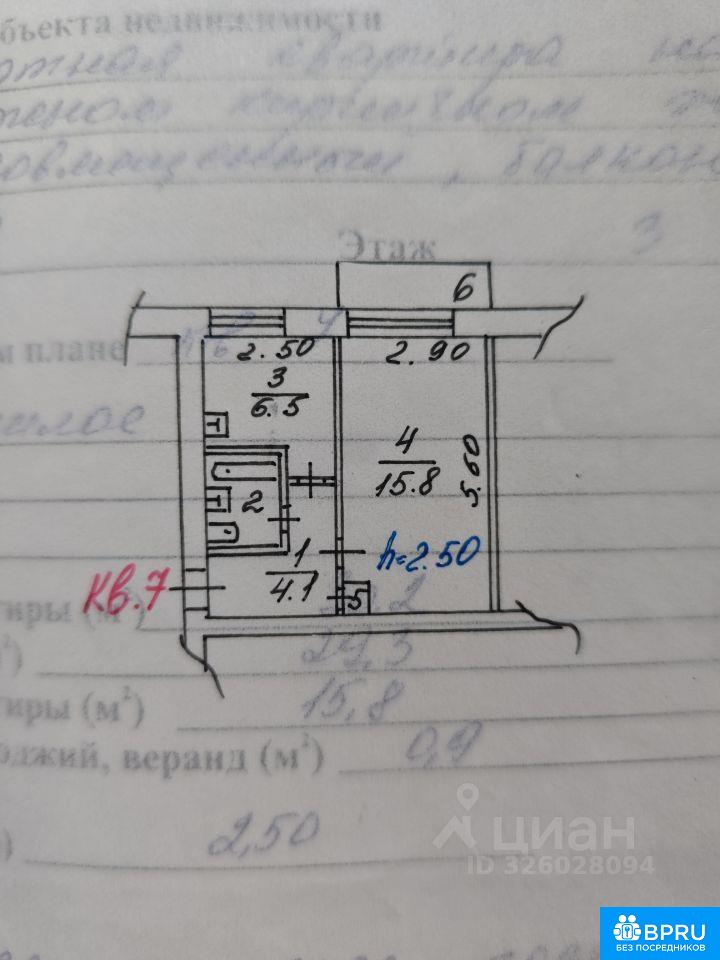 бъекта недвижимости
квартира
кирпичном
совмещенным, балкон
Этаж 3
м плане
6
2.50 2.90
3
6.5
4
15.8
5.60
2
h=2.50
1
4.1
5
КВ.7
тиры (м²)
²) 29,3
тиры (м²) 15,8
оджий, веранд (м²) 0,9
) 2,50
циан
ID 326028094
BPRU
БЕЗ ПОСРЕДНИКОВ